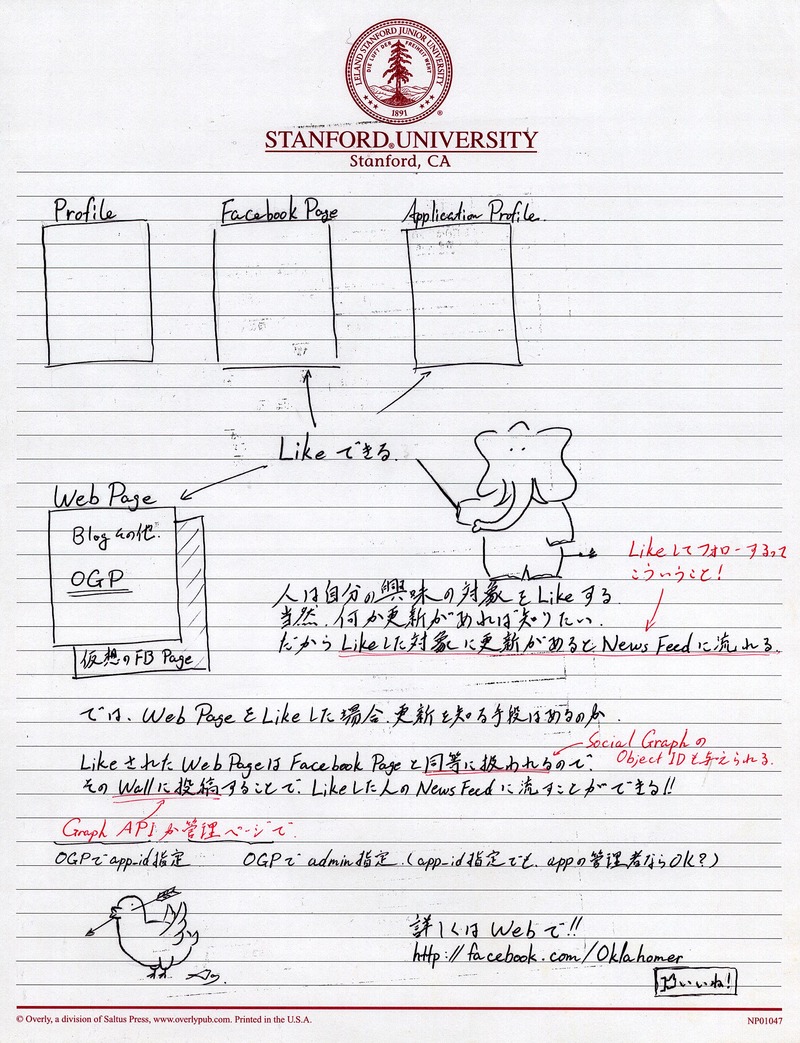 LELAND STANFORD JUNIOR UNIVERSITY
DIE LUFT DER FREIHEIT WEHT
1891
STANFORD® UNIVERSITY
Stanford, CA
Profile
Facebook Page
Application Profile.
Likeできる.
Web Page
Blog その他.
OGP
仮想のFB Page
Likeしてフォローするって
こういうこと!
人は自分の興味の対象をLikeする.
当然、何か更新があれば知りたい.
だから Likeした対象に更新があるとNews Feedに流れる.
では、Web PageをLikeした場合、更新を知る手段はあるのか.
Social Graphの
Object IDも与えられる.
LikeされたWeb PageはFacebook Pageと同等に扱われるので、
そのWallに投稿することで、Likeした人のNews Feedに流すことができる!!
Graph APIか管理ページで.
OGPでapp_id指定
OGPでadmin指定.(app_id指定でも、appの管理者ならOK?)
詳しくはWebで!!
http://facebook.com/Oklahomer
いいね!
© Overly, a division of Saltus Press, www.overlypub.com. Printed in the U.S.A.
NP01047